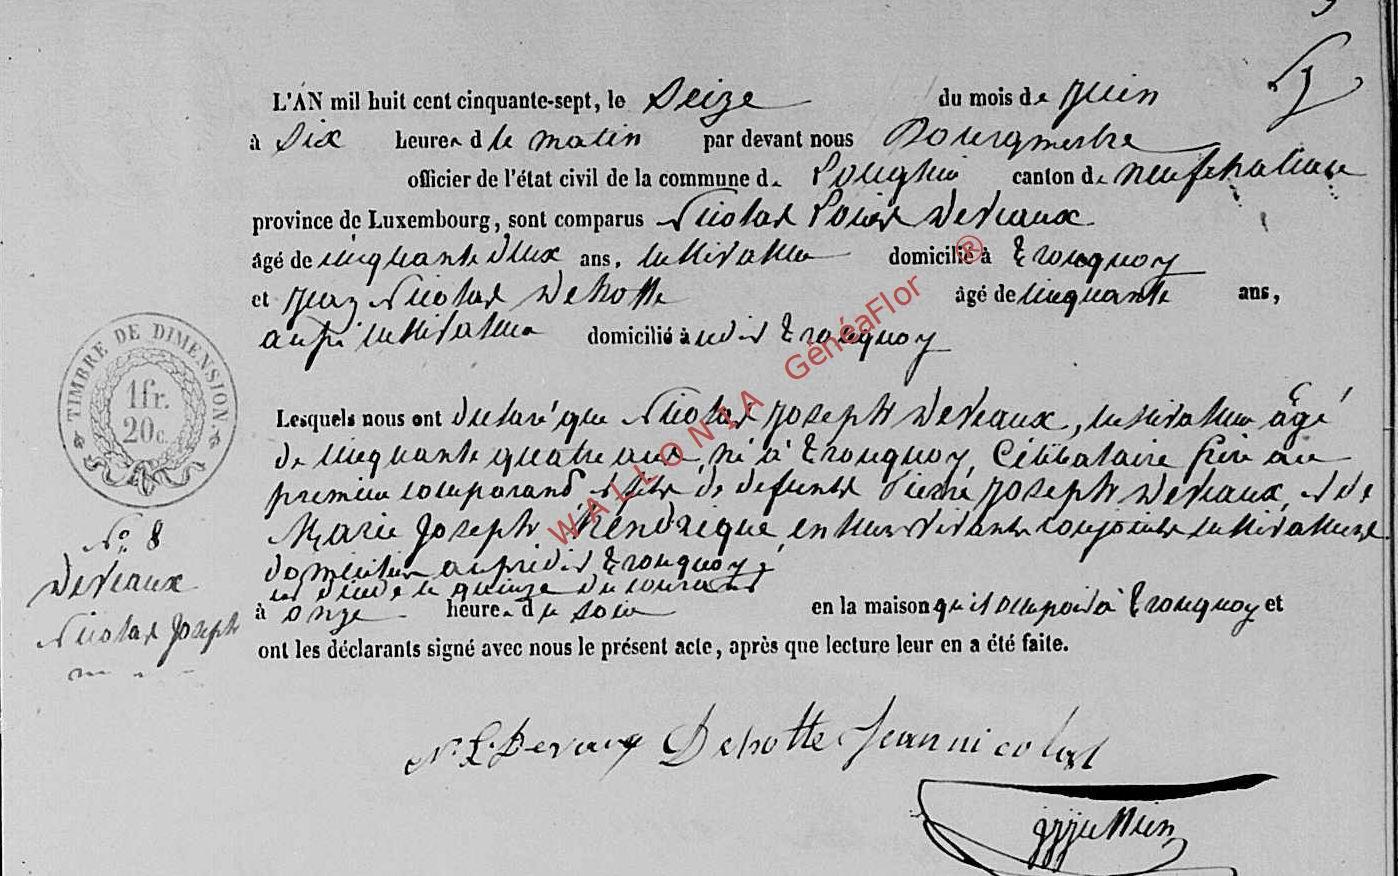 L'AN mil huit cent cinquante-sept, le Seize du mois de Juin
à Six heures du matin par devant nous Bourgmestre
officier de l'état civil de la commune de Longlier canton de neufchateau
province de Luxembourg, sont comparus Nicolas Louis Devaux
âgé de cinquante deux ans, cultivateur domicilié à Tronquoy
et Jean Nicolas Dehotte âgé de cinquante ans,
aussi cultivateur domicilié à Tronquoy
TIMBRE DE DIMENSION
1fr.
20c.
Lesquels nous ont declaré que Nicolas Joseph Devaux, cultivateur âgé
de cinquante quatre ans, né à Tronquoy, Célibataire frère au
premier comparant et fils de defunts Pierre Joseph Devaux, et de
Marie Joseph Hendrique, en leur vivant conjoints cultivateurs
domiciliés Tronquoy,
est decedé le quinze du courant
à onze heures du soir en la maison qu'il occupoit à Tronquoy et
ont les déclarants signé avec nous le présent acte, après que lecture leur en a été faite.
No 8
Devaux
Nicolas Joseph
N. L. Devaux Dehotte Jean nicolas
WALLONIA GénéaFlor ®